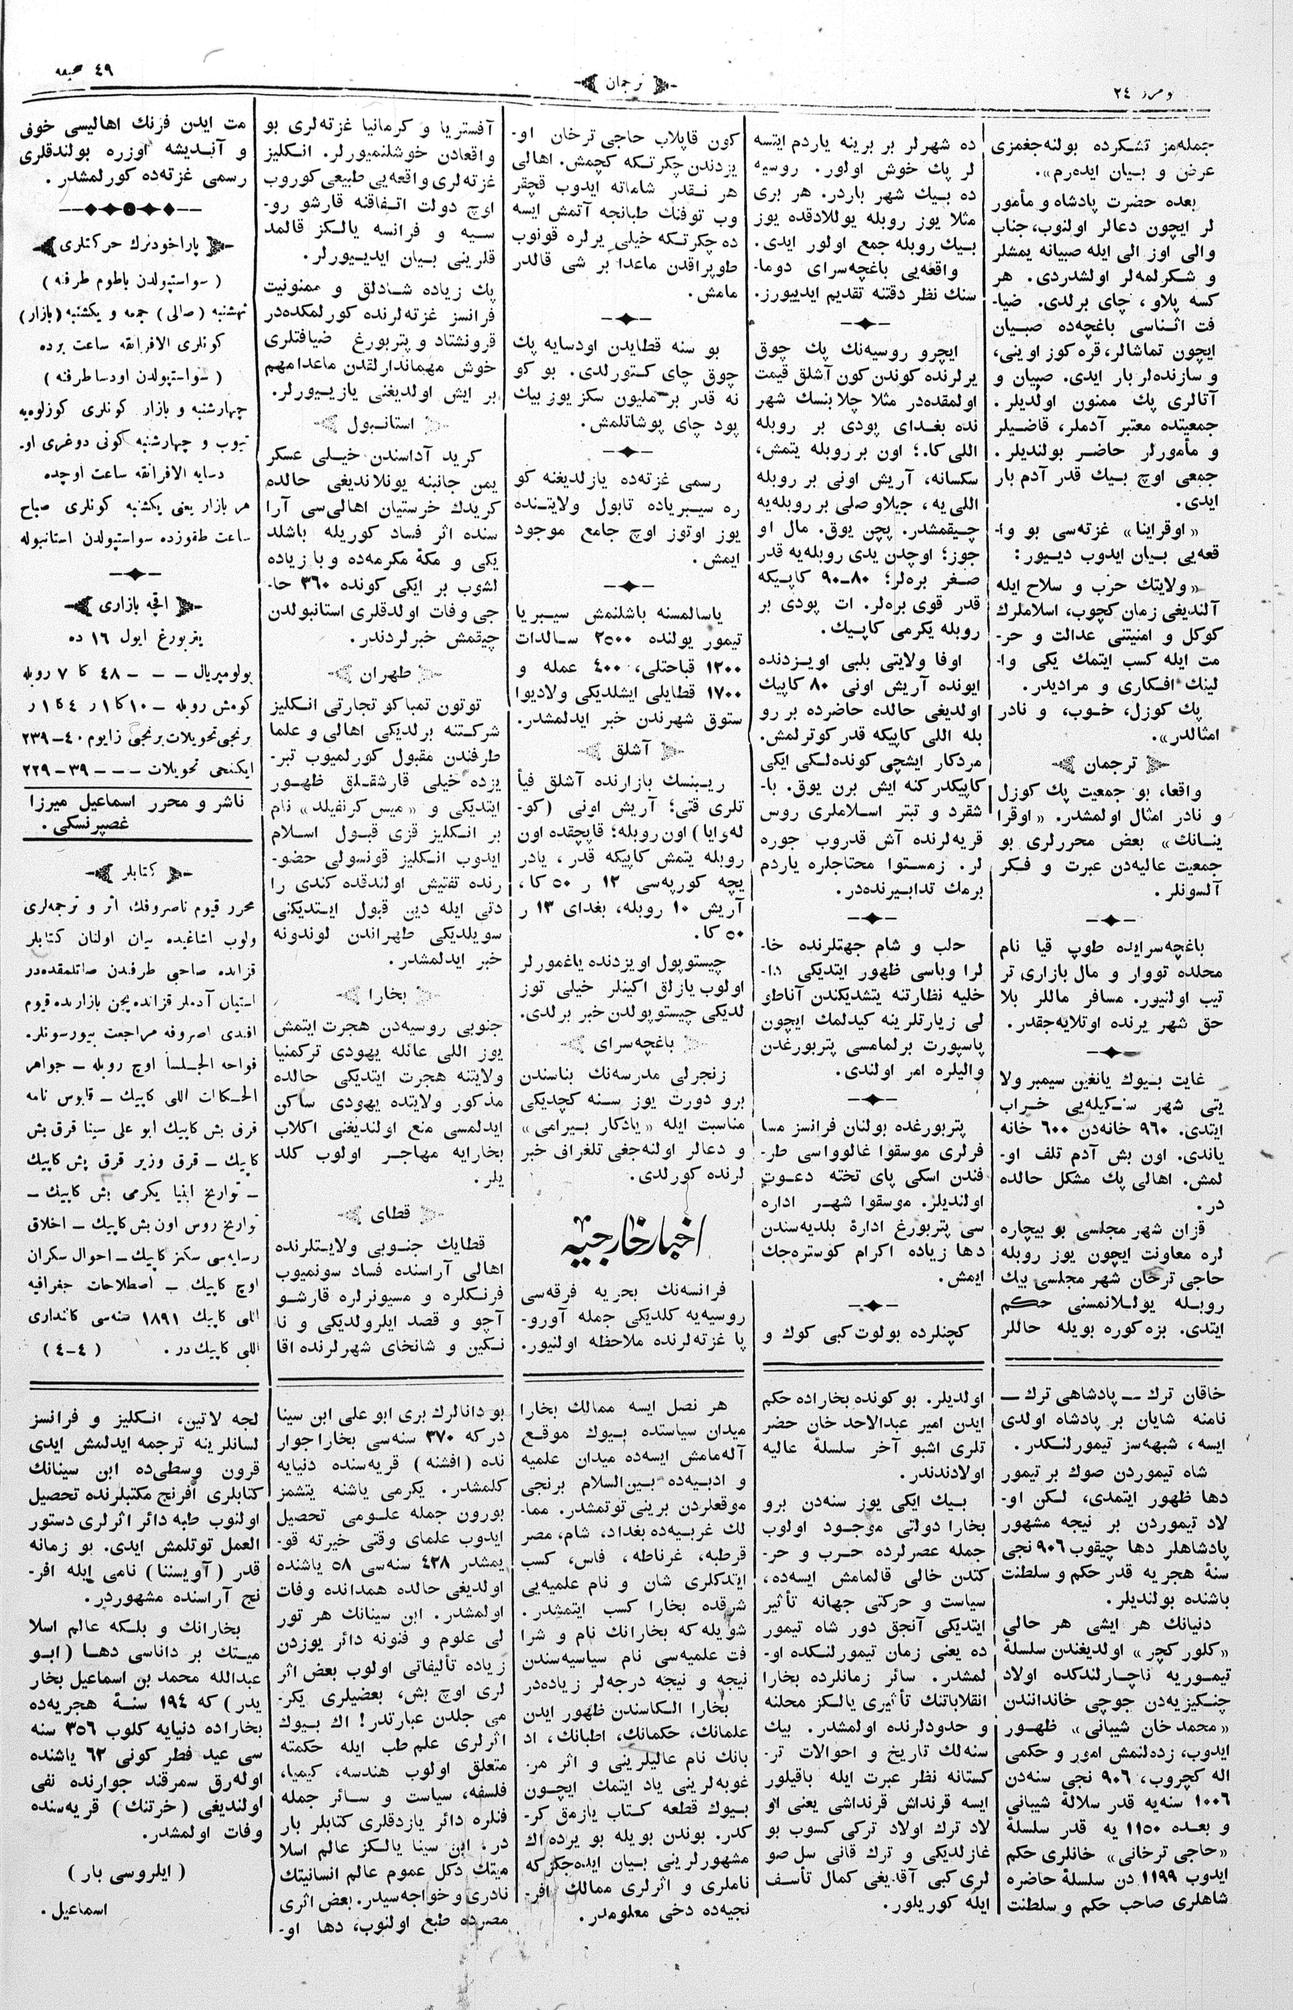 نومرو ٢٤
ترجمان
صحیفه ٤٩
جمله‌مز تشکرده بولنه‌جغمزی
عرض و بیان ایده‌رم».
بعده حضرت پادشاه و مأمور
لر ایچون دعالر اولنوب، جناب
والی اوز الی ایله صبیانه یمشلر
و شکرلمه‌لر اولشدردی. هر
کسه پلاو، چای برلدی. ضیا-
فت اثناسی باغچه‌ده صبیان
ایچون تماشالر، قره کوز اوینی،
و سازنده‌لر بار ایدی. صبیان و
آتالری پك ممنون اولدیلر.
جمعیتده معتبر آدملر، قاضیلر
و مأمورلر حاضر بولندیلر.
جمعی اوچ بیك قدر آدم بار
ایدی.
«اوقراینا» غزته‌سی بو وا-
قعه‌یی بیان ایدوب دییور:
«ولایتك حزب و سلاح ایله
آلندیغی زمان کچوب، اسلاملرك
کوکل و امنیتنی عدالت و حر-
مت ایله کسب ایتمك یکی وا-
لینك افکاری و مرادیدر.
پك کوزل، خوب، و نادر
امثالدر».
ترجمان
واقعا، بو جمعیت پك کوزل
و نادر امثال اولمشدر. «اوقرا
ینانك» بعض محررلری بو
جمعیت عالیه‌دن عبرت و فکر
آلسونلر.
باغچه‌سرایده طوپ قیا نام
محلده تووار و مال بازاری تر
تیب اولنیور. مسافر ماللر بلا
حق شهر یرنده اوتلایه‌جقدر.
غایت بیوك یانغین سیمبر ولا
یتی شهر سنکیله‌یی خراب
ایتدی. ٩٦٠ خانه‌دن ٦٠٠ خانه
یاندی. اون بش آدم تلف او-
لمش. اهالی پك مشکل حالده
در.
قزان شهر مجلسی بو بیچاره
لره معاونت ایچون یوز روبله
حاجی ترخان شهر مجلسی بیك
روبله یوللانمسنی حکم
ایتدی. بزه کوره بویله حاللر
ده شهرلر بر برینه یاردم ایتسه
لر پك خوش اولور. روسیه
ده بیك شهر باردر. هر بری
مثلا یوز روبله یوللادقده یوز
بیك روبله جمع اولور ایدی.
واقعه‌یی باغچه‌سرای دوما-
سنك نظر دقتنه تقدیم ایدییورز.
ایچرو روسیه‌نك پك چوق
یرلرنده کوندن کون آشلق قیمت
اولمقده‌در مثلا چلابنسك شهر
نده بغدای پودی بر روبله
اللی کا.؛ اون بر روبله یتمش،
سکسانه، آریش اونی بر روبله
اللی‌یه، جیلاو صلی بر روبله‌یه
چیقمشدر. پچن یوق. مال او
جوز؛ اوچدن یدی روبله‌یه قدر
صغر بره‌لر؛ ٨٠-٩٠ کاپیکه
قدر قوی بره‌لر. ات پودی بر
روبله یکرمی کاپیك.
اوفا ولایتی بلبی اویزدنده
ایونده آریش اونی ٨٠ کاپیك
اولدیغی حالده حاضرده بر رو
بله اللی کاپیکه قدر کوترلمش.
مردکار ایشچی کونده‌لکی ایکی
کاپیکدر کنه ایش برن یوق. با-
شقرد و تبتر اسلاملری روس
قریه‌لرنده آش قدروب جوره
لر. زمستوا محتاجلره یاردم
برمك تدابیرنده‌در.
حلب و شام جهتلرنده خا-
لرا وباسی ظهور ایتدیکی دا-
خلیه نظارتنه یتشدیکندن آناطو
لی زیارتلرینه کیدلمك ایچون
پاسپورت برلمامسی پتربورغدن
والیلره امر اولندی.
پتربورغده بولنان فرانسز مسا
فرلری موسقوا غالوواسی طر-
فندن اسکی پای تخته دعوت
اولندیلر. موسقوا شهر اداره
سی پتربورغ ادارهٔ بلدیه‌سندن
دها زیاده اکرام کوستره‌جك
ایمش.
کچنلرده بولوت کبی کوك و
کون قاپلاب حاجی ترخان او-
یزدندن چکرتکه کچمش. اهالی
هر نقدر شاماته ایدوب قچقر
وب توفنك طبانجه آتمش ایسه
ده چکرتکه خیلی یرلره قونوب
طوپراقدن ماعدا بر شی قالدر
مامش.
بو سنه قطایدن اودسایه پك
چوق چای کتورلدی. بو کو
نه قدر بر ملیون سکز یوز بیك
پود چای پوشاتلمش.
رسمی غزته‌ده یازلدیغنه کو
ره سیبریاده تابول ولایتنده
یوز اوتوز اوچ جامع موجود
ایمش.
یاسالمسنه باشلنمش سیبریا
تیمور یولنده ٢٥٠٠ سالدات
١٢٠٠ قباحتلی، ٤٠٠ عمله و
١٧٠٠ قطایلی ایشلدیکی ولادیوا
ستوق شهرندن خبر ایدلمشدر.
آشلق
ریبنسك بازارنده آشلق فیأ
تلری قتی؛ آریش اونی (کو-
له وایا) اون روبله؛ قاپچقده اون
روبله یتمش کاپیکه قدر، یادر
یچه کورپه‌سی ١٢ ر ٥٠ کا،
آریش ١٠ روبله، بغدای ١٣ ر
٥٠ کا.
چیستوپول اویزدنده یاغمورلر
اولوب یازلق اکینلر خیلی توز
لدیکی چیستوپولدن خبر برلدی.
باغچه‌سرای
زنجرلی مدرسه‌نك بناسندن
برو دورت یوز سنه کچدیکی
مناسبت ایله «یادکار بیرامی»
و دعالر اولنه‌جغی تلغرافی خبر
لرنده کورلدی.
اخبار خارجیه
فرانسه‌نك بحریه فرقه‌سی
روسیه‌یه کلدیکی جمله آورو-
پا غزته‌لرنده ملاحظه اولنیور.
آفستریا و کرمانیا غزته‌لری بو
واقعادن خوشلنمیورلر. انکلیز
غزته‌لری واقعه‌یی طبیعی کوروب
اوچ دولت اتفاقنه قارشو رو-
سیه و فرانسه یالکز قالمد
قلرینی بیان ایدییورلر.
پك زیاده شادلق و ممنونیت
فرانسز غزته‌لرنده کورلمکده‌در
قرونشتاد و پتربورغ ضیافتلری
خوش مهماندارلقدن ماعدا مهم
بر ایش اولدیغنی یازییورلر.
استانبول
کرید آداسندن خیلی عسکر
یمن جانبنه یوللاندیغی حالده
کریدك خرستیان اهالی‌سی آرا
سنده اثر فساد کوریله باشلد
یکی و مکهٔ مکرمه‌ده وبا زیاده
لشوب بر ایکی کونده ٣٦٠ حا-
جی وفات اولدقلری استانبولدن
چیقمش خبرلردندر.
طهران
توتون تمباکو تجارتی انکلیز
شرکتنه برلدیکی اهالی و علما
طرفندن مقبول کورلمیوب تبر-
یزده خیلی قارشقلق ظهور
ایتدیکی و «میس کرنفیلد» نام
بر انکلیز قزی قبول اسلام
ایدوب انکلیز قونسولی حضو-
رنده تفتیش اولندقده کندی را
دتی ایله دین قبول ایتدیکنی
سویلدیکی طهراندن لوندونه
خبر ایدلمشدر.
بخارا
جنوبی روسیه‌دن هجرت ایتمش
یوز اللی عائله یهودی ترکمنیا
ولایتنه هجرت ایتدیکی حالده
مذکور ولایتده یهودی ساکن
ایدلمسی منع اولندیغنی اکلاب
بخارایه مهاجر اولوب کلد
یلر.
قطای
قطایك جنوبی ولایتلرنده
اهالی آراسنده فساد سونمیوب
فرنکلره و مسیونرلره قارشو
آچو و قصد ایلرولدیکی و نا
نکین و شانخای شهرلرنده اقا
مت ایدن فرنك اهالیسی خوفی
و آندیشه اوزره بولندقلری
رسمی غزته‌ده کورلمشدر.
پاراخودنرك حرکتلری
(سواستپولدن باطوم طرفه)
ثهشنبه (صالی) جمعه و یکشنبه (بازار)
کونلری الافرانقه ساعت برده
(سواستپولدن اودسا طرفنه)
چهارشنبه و بازار کونلری کوزلوه‌یه
تیوب و چهارشنبه کونی دوغری او-
دسایه الافرانقه ساعت اوچده
هر بازار یعنی یکشنبه کونلری صباح
ساعت طقوزده سواستپولدن استانبوله
اقچه بازاری
پتربورغ ایول ١٦ ده
پولومپریال --- ٤٨ کا ٧ روبله
کومش روبله - ١٠ کا ١ ر ٤ کا ١ ر
برنجی تحویلات برنجی زایوم ٤٠-٢٣٩
ایکنجی تحویلات --- ٣٩-٢٢٩
ناشر و محرر اسماعیل میرزا
غصپرنسکی.
کتابلر
محرر قیوم ناصروفك، اثر و ترجمه‌لری
ولوب اشاغیده بیان اولنان کتابلر
قزانده صاحبی طرفندن صاتلمقده‌در
استیان آدملر قزانده پچن بازارنده قیوم
افندی ناصروفه مراجعت بیورسونلر.
فواحه الجلسأ اوچ روبله - جواهر
الحکایات اللی کاپیك - قابوس نامه
قرق بش کاپیك ابو علی سینا قرق بش
کاپیك - قرق وزیر قرق بش کاپیك
- تواریخ انبیا یکرمی بش کاپیك -
تواریخ روس اون بش کاپیك - اخلاق
رساله‌سی سکز کاپیك - احوال سکران
اوچ کاپیك - اصطلاحات جغرافیه
اللی کاپیك ١٨٩١ سنه‌سی کالنداری
اللی کاپیك در. (٤-٤)
خاقان ترك - پادشاهی ترك -
نامنه شایان بر پادشاه اولدی
ایسه، شبهه‌سز تیمورلنکدر.
شاه تیموردن صوك بر تیمور
دها ظهور ایتمدی، لکن او-
لاد تیموردن بر نیجه مشهور
پادشاهلر دها چیقوب ٩٠٦ نجی
سنهٔ هجریه قدر حکم و سلطنت
باشنده بولندیلر.
دنیانك هر ایشی هر حالی
«کلور کچر» اولدیغندن سلسلهٔ
تیموریه ناچارلندکده اولاد
چنکیزیه‌دن جوچی خاندانندن
«محمد خان شیبانی» ظهور
ایدوب، زده‌لنمش امور و حکمی
اله کچروب، ٩٠٦ نجی سنه‌دن
١٠٠٦ سنه‌یه قدر سلالهٔ شیبانی
و بعده ١١٥٠ یه قدر سلسلهٔ
«حاجی ترخانی» خانلری حکم
ایدوب ١١٩٩ دن سلسلهٔ حاضره
شاهلری صاحب حکم و سلطنت
اولدیلر. بو کونده بخاراده حکم
ایدن امیر عبدالاحد خان حضر
تلری اشبو آخر سلسلهٔ عالیه
اولادندندر.
بیك ایکی یوز سنه‌دن برو
بخارا دولتی موجود اولوب
جمله عصرلرده حرب و حر-
کتدن خالی قالمامش ایسه‌ده،
سیاست و حرکتی جهانه تأثیر
ایتدیکی آنجق دور شاه تیمور
ده یعنی زمان تیمورلنکده او-
لمشدر. سائر زمانلرده بخارا
انقلاباتنك تأثیری یالکز محلنه
و حدودلرنده اولمشدر. بیك
سنه‌لك تاریخ و احوالات تر-
کستانه نظر عبرت ایله باقیلور
ایسه قرنداش قرنداشی یعنی او
لاد ترك اولاد ترکی کسوب بو
غازلدیکی و ترك قانی سل صو
لری کبی آقدیغی کمال تأسف
ایله کوریلور.
هر نصل ایسه ممالك بخارا
میدان سیاستده بیوك موقع
آله‌مامش ایسه‌ده میدان علمیه
و ادبیه‌ده بین‌السلام برنجی
موقعلردن برینی توتمشدر. مما-
لك غربیه‌ده بغداد، شام، مصر
قرطبه، غرناطه، فاس، کسب
ایتدکلری شان و نام علمیه‌یی
شرقده بخارا کسب ایتمشدر.
شویله‌که بخارانك نام و شرا
فت علمیه‌سی نام سیاسیه‌سندن
نیجه و نیجه درجه‌لر زیاده‌در
بخارا الکاسندن ظهور ایدن
علمانك، حکمانك، اطبانك، اد
بانك نام عالیلرینی و اثر مر-
غوبه‌لرینی یاد ایتمك ایچون
بیوك قطعه کتاب یازمق کر-
کدر. بوندن بویله بو یرده اك
مشهورلرینی بیان ایده‌جکز که
ناملری و اثرلری ممالك افر-
نجیه‌ده دخی معلومدر.
بو دانالرك بری ابو علی ابن سینا
درکه ٣٧٠ سنه‌سی بخارا جوار
نده (افشنه) قریه‌سنده دنیایه
کلمشدر. یکرمی یاشنه یتشمز
بورون جمله علومی تحصیل
ایدوب علمای وقتی خیرته قو-
یمشدر ٤٢٨ سنه‌سی ٥٨ یاشنده
اولدیغی حالده همدانده وفات
اولمشدر. ابن سینانك هر تور
لی علوم و فنونه دائر یوزدن
زیاده تألیفاتی اولوب بعض اثر
لری اوچ بش، بعضیلری یکر-
می جلدن عبارتدر! اك بیوك
اثرلری علم طب ایله حکمته
متعلق اولوب هندسه، کیمیا،
فلسفه، سیاست و سائر جمله
فنلره دائر یازدقلری کتابلر بار
در. ابن سینا یالکز عالم اسلا
میتك دکل عموم عالم انسانیتك
نادری و خواجه‌سیدر. بعض اثری
مصرده طبع اولنوب، دها او-
لجه لاتین، انکلیز و فرانسز
لسانلرینه ترجمه ایدلمش ایدی
قرون وسطی‌ده ابن سینانك
کتابلری آفرنج مکتبلرنده تحصیل
اولنوب طبه دائر اثرلری دستور
العمل توتلمش ایدی. بو زمانه
قدر (آویسننا) نامی ایله افر-
نج آراسنده مشهوردر.
بخارانك و بلکه عالم اسلا
میتك بر داناسی دها (ابو
عبدالله محمد بن اسماعیل بخار
یدر) که ١٩٤ سنهٔ هجریه‌ده
بخاراده دنیایه کلوب ٢٥٦ سنه
سی عید فطر کونی ٦٢ یاشنده
اوله‌رق سمرقند جوارنده نفی
اولندیغی (خرتنك) قریه‌سنده
وفات اولمشدر.
(ایلروسی بار)
اسماعیل.